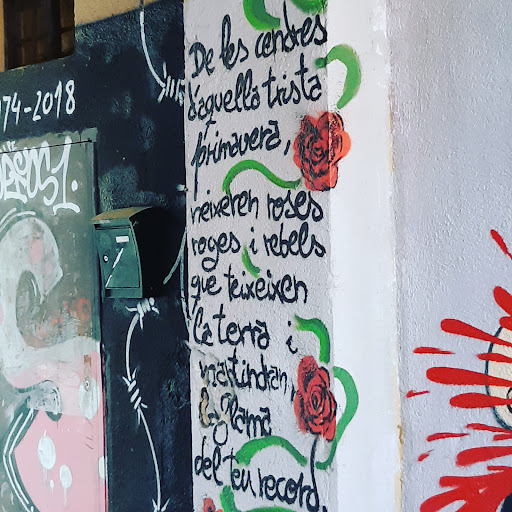 De les cendres
d'aquella trista
primavera,
neixeren roses
roges i rebels
que teixeixen
la terra i
mantindran,
la flama
del teu record.
74-2018